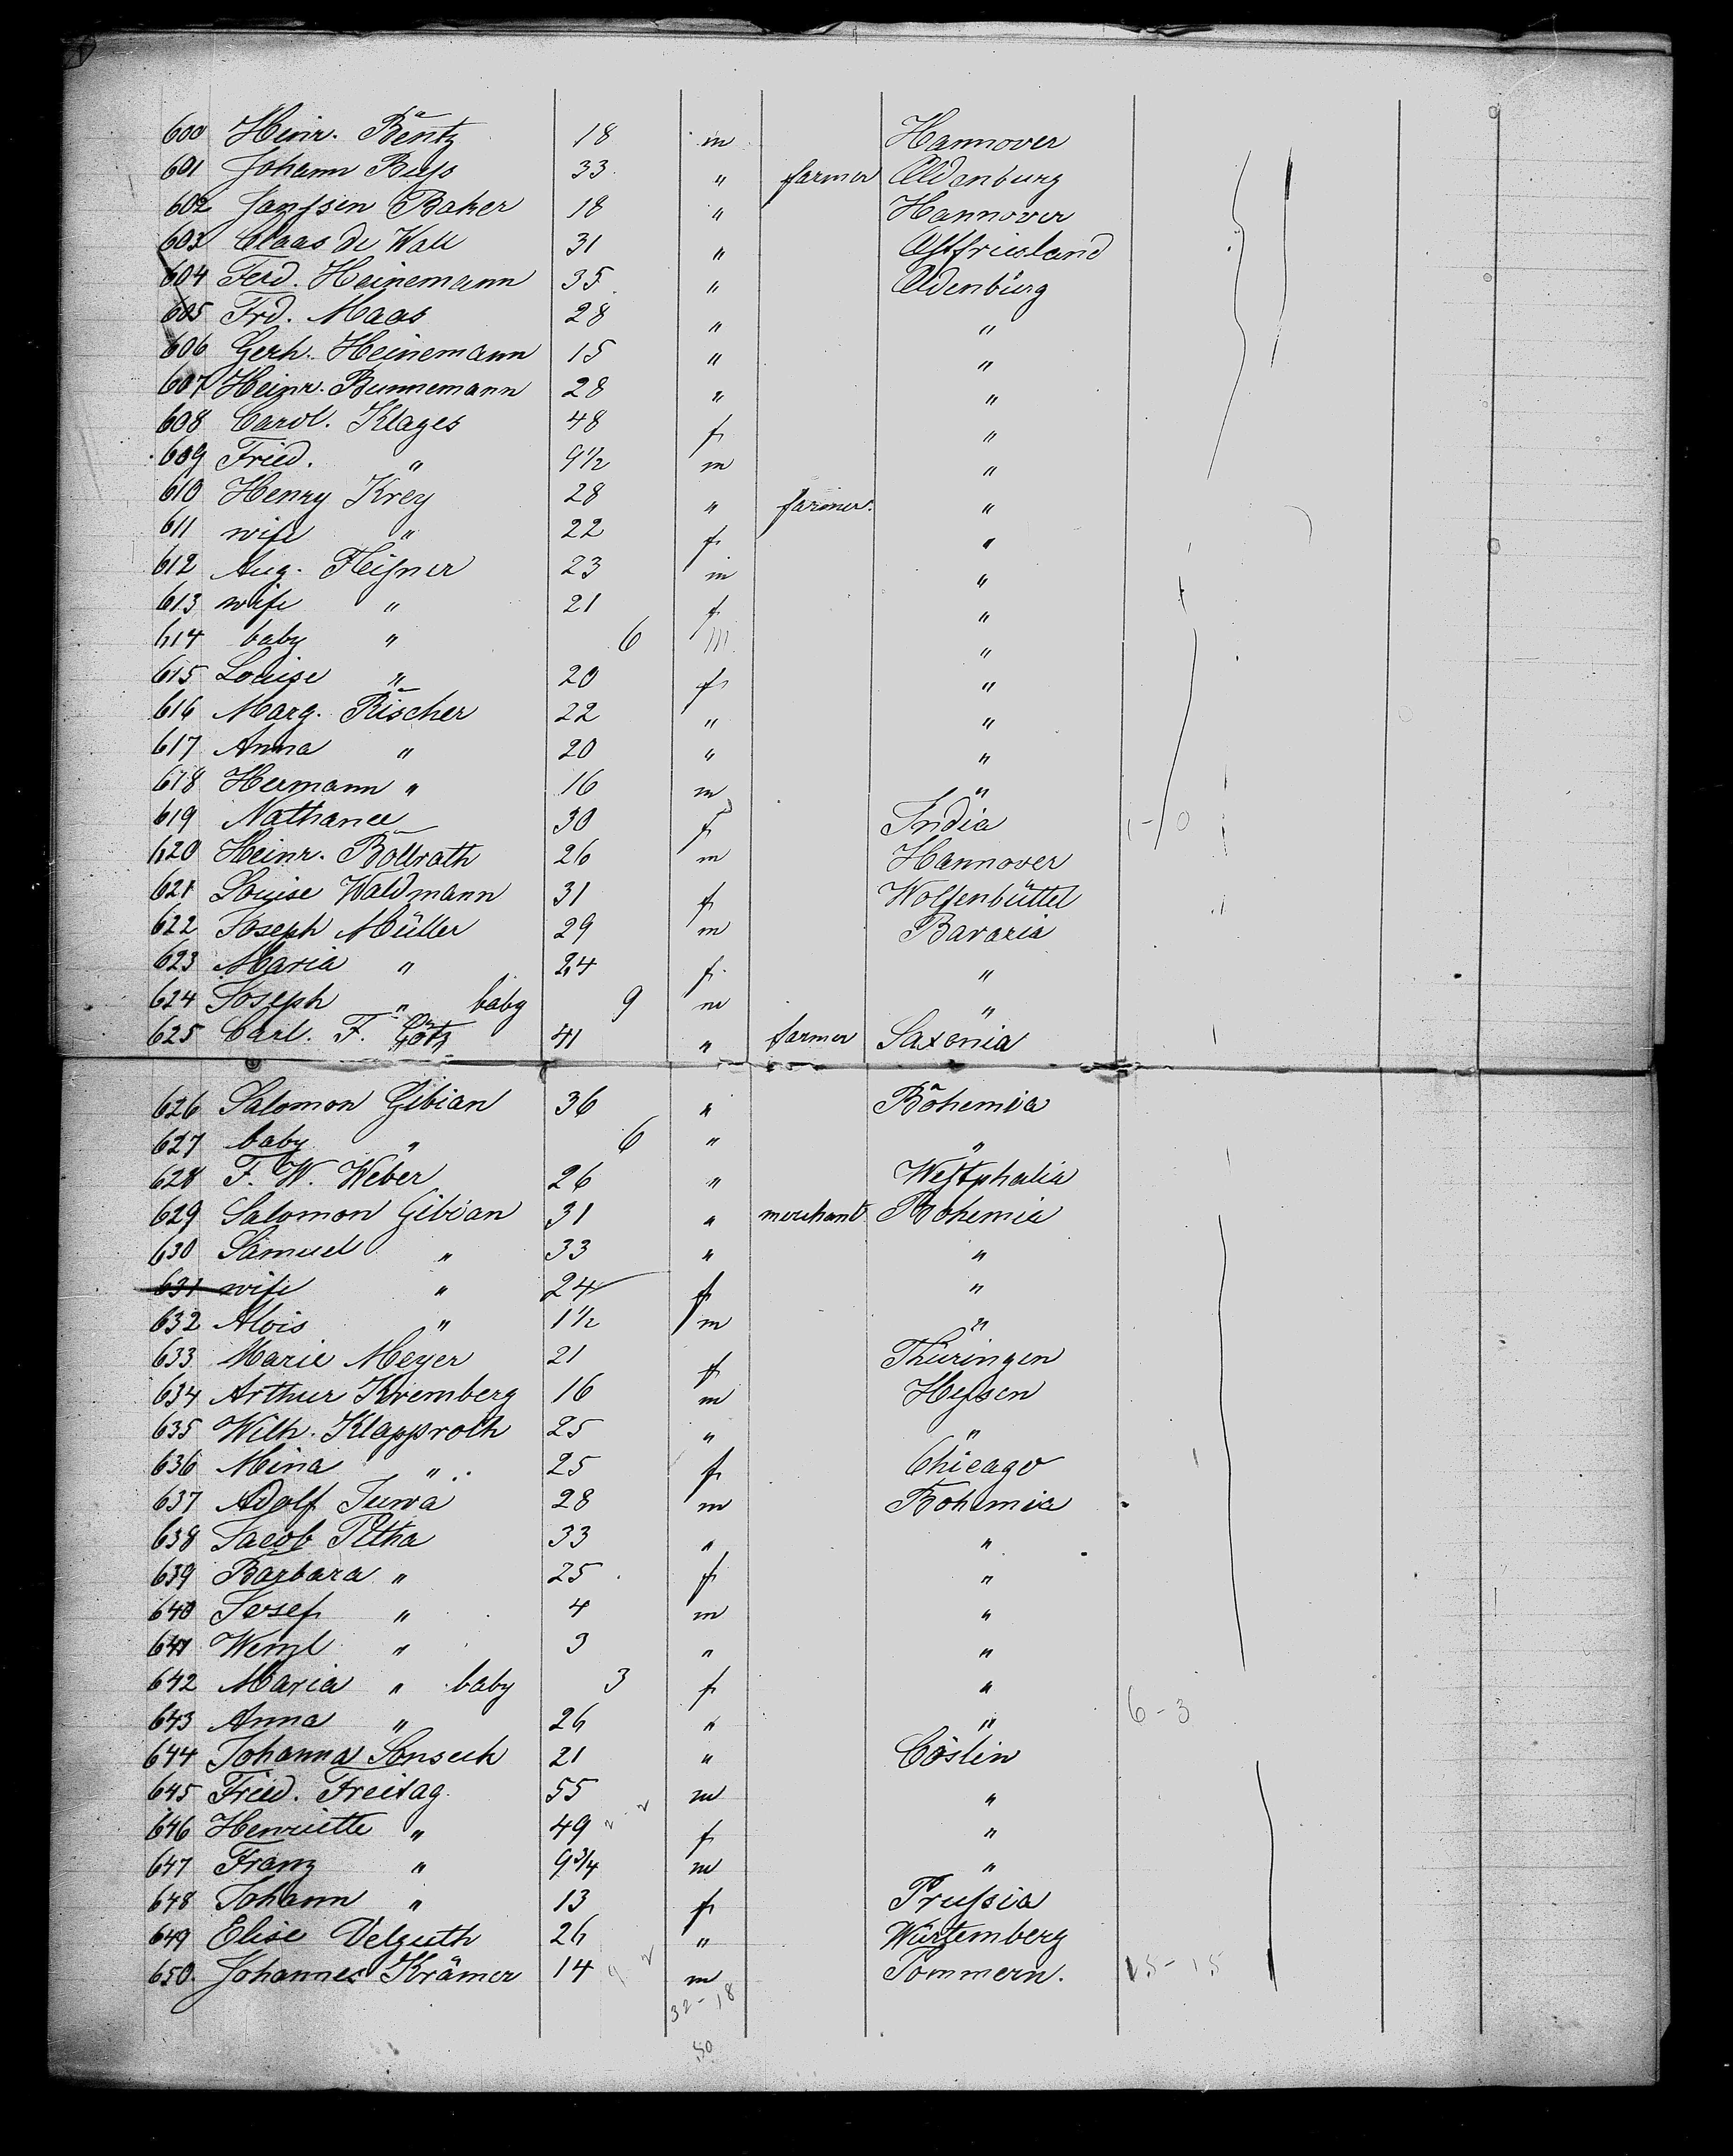 600 Heinr. Bentz 18 m Hannover
601 Johann Buss 33 " farmer Oldenburg
602 Janssen Baker 18 " Hannover
603 Claas de Wall 31 " Ostfriesland
604 Ferd. Heinemann 35 " Oldenburg
605 Frd. Maas 28 " "
606 Gerh. Heinemann 15 " "
607 Heinr. Bunnemann 28 " "
608 Carol. Klages 48 f "
609 Fried. " 9 1/2 m "
610 Henry Krey 28 " farmer. "
611 wife " 22 f "
612 Aug. Fleissner 23 m "
613 wife " 21 f "
614 baby " 6 m "
615 Louise " 20 f "
616 Marg. Rischer 22 " "
617 Anna " 20 " "
618 Hermann " 16 m "
619 Nathanee 30 f India 1-0
620 Heinr. Böllrath 26 m Hannover
621 Louise Waldmann 31 f Wolfenbüttel
622 Joseph Müller 29 m Bavaria
623 Maria " 24 f "
624 Joseph " baby 9 m "
625 Carl. F. Götz 41 " farmer Saxonia
626 Salomon Gibian 36 " Böhemia
627 baby " 6 " "
628 F. W. Weber 26 " Westphalia
629 Salomon Gibian 31 " merchant Bohemia
630 Samuel " 33 " "
631 wife " 24 f "
632 Alois " 1 1/2 m "
633 Marie Meyer 21 f Thüringen
634 Arthur Kremberg 16 m Hessen
635 Wilh. Klapproth 25 " "
636 Mina " 25 f Chicago
637 Adolf 28 m Bohemia
638 Jacob Petha 33 " "
639 Barbara " 25 f "
640 Josef " 4 m "
641 Wenzl " 3 " "
642 Maria " baby 3 f "
643 Anna " 26 " " 6-3
644 Johanna 21 " Cöslin
645 Fried. Freitag 55 m "
646 Henriette " 49 f "
647 Franz " 9 3/4 m "
648 Johann " 13 f Prussia
649 Elise Velguth 26 " Würtemberg
650. Johannes Krämer 14 m Pommern. 15-15
32-18
50